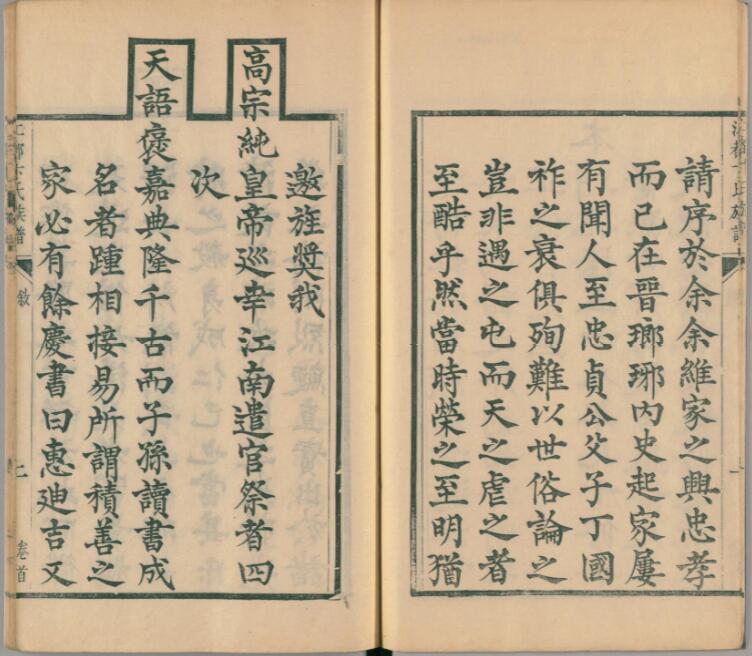 請序於余余維家之興忠孝
而已在晉瑯琊內史起家屢
有聞人至忠貞公父子丁國
祚之衰俱殉難以世俗論之
豈非遇之屯而天之虐之者
至酷乎然當時榮之至明猶
邀旌獎我
高宗純皇帝巡幸江南遣官祭者四
次
天語褒嘉典隆千古而子孫讀書成
名者踵相接易所謂積善之
家必有餘慶書曰惠迪吉又
江都卞氏族譜
敘
卷首